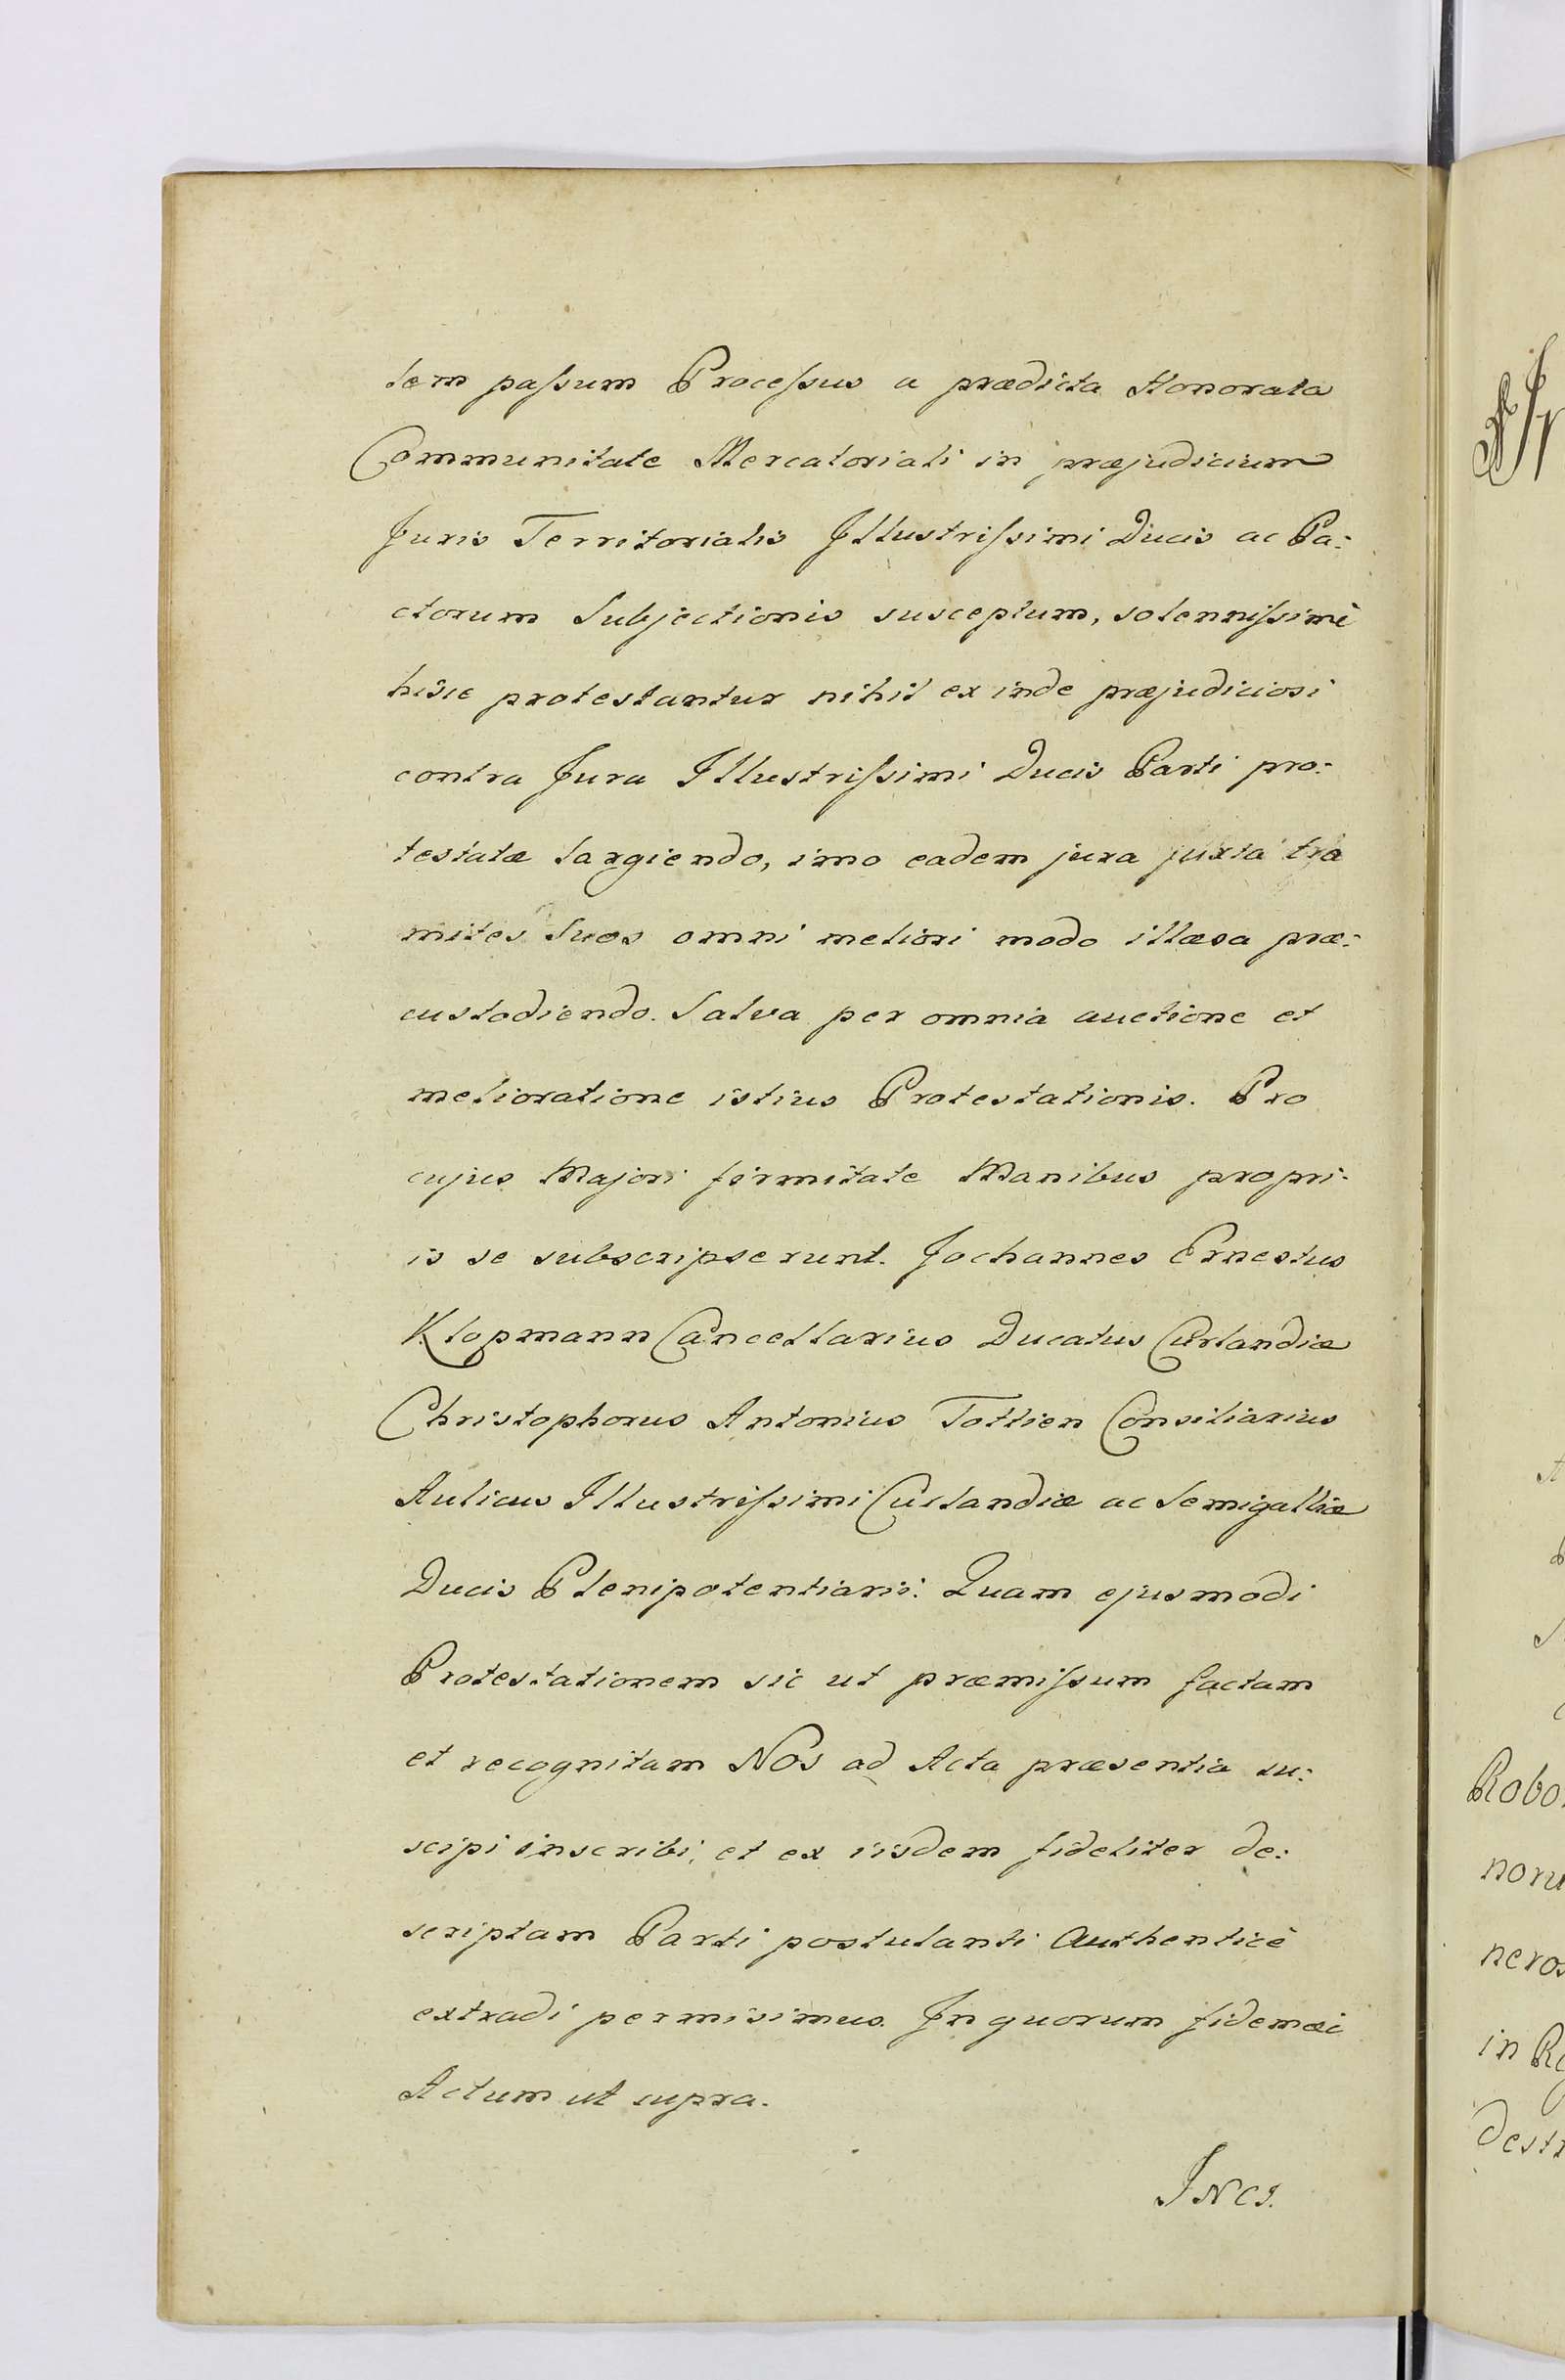 tem passum Processus a prædicta Honorata
Communitate Mercatoriali in præjudicium
Juris Territorialis Illustrissimi Ducis ac Pa:
ctorum Subjectionis susceptum, solennissimè
hisce protestantur nihil ex inde præjudiciosi
contra Jura Illustrissimi Ducis Parti pro:
testatæ largiendo, imo eadem jura juxta tra
mites Suos omni meliori modo illæsa præ:
custodiendo. Salva per omnia auctione et
melioratione istius Protestationis. Pro
cujus Majori firmitate Manibus propri:
is se subscripserunt. Jochannes Ernestus
Klopmann Cancellarius Ducatus Curlandiæ
Christophorus Antonius Tottien Consiliarius
Aulicus Illustrissimi Curlandiæ ac Semigalliæ
Ducis Plenipotentiarii: Quam ejusmodi
Protestationem sic ut præmissum factam
et recognitam Nos ad Acta præsentia su:
scipi inscribi, et ex iisdem fideliter de:
scriptam Parti postulanti Authenticè
extradi permisimus. In quorum fidem
Actum ut supra.
Robo
noru
neros
in
destr